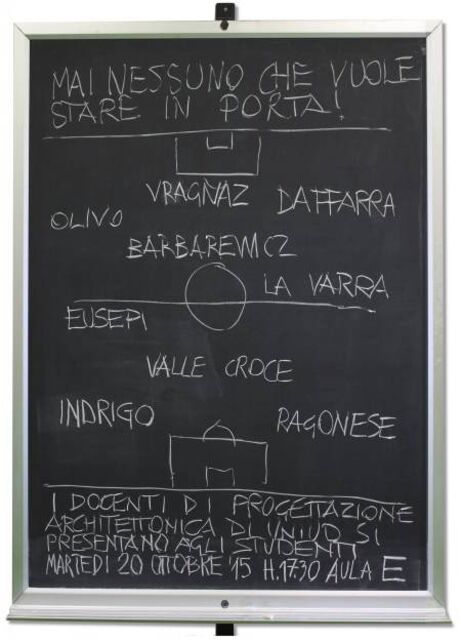 MAI NESSUNO CHE VUOLE
STARE IN PORTA!
VRAGNAZ DAFFARRA
OLIVO
BARBAREWICZ
LA VARRA
EUSEPI
VALLE CROCE
INDRIGO RAGONESE
I DOCENTI DI PROGETTAZIONE
ARCHITETTONICA DI UNIUD SI
PRESENTANO AGLI STUDENTI
MARTEDI 20 OTTOBRE '15 H.17.30 AULA E